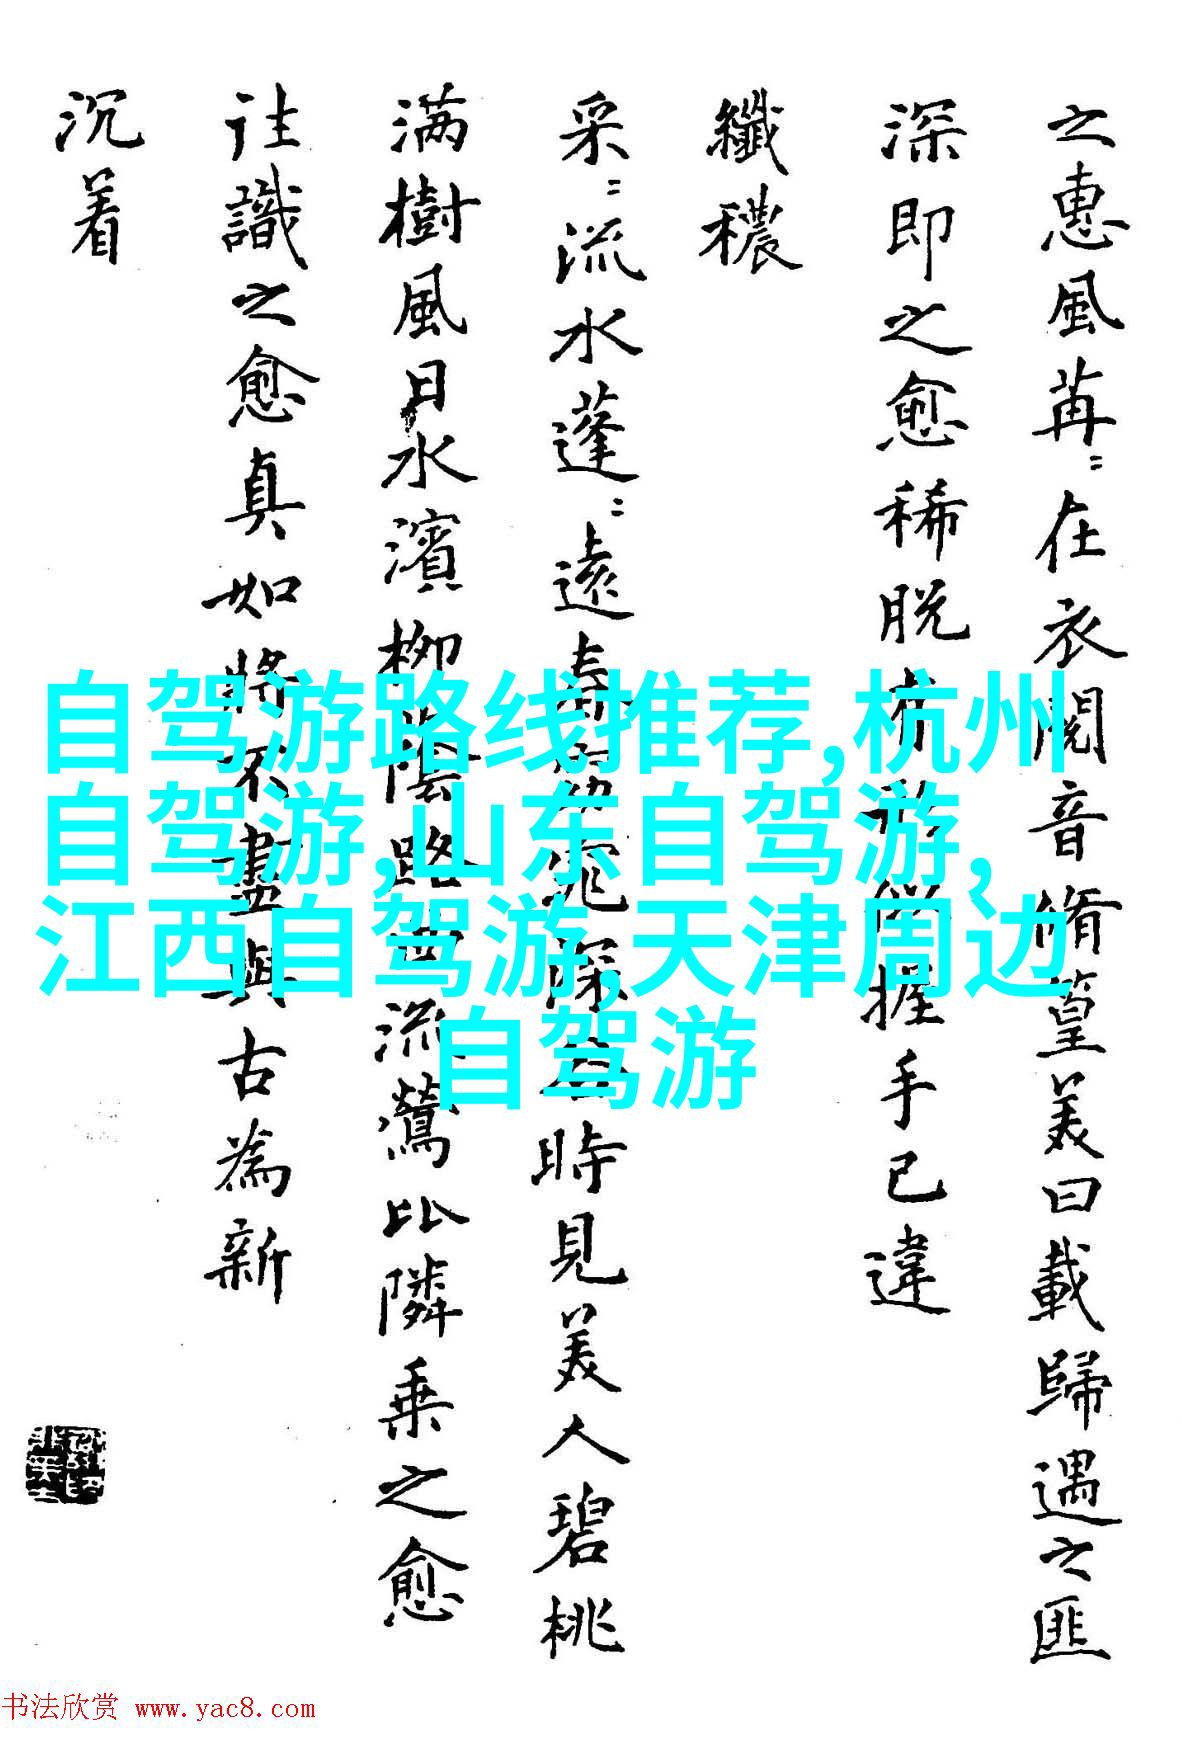 之惠風苒〻在衣閱音脩篁美曰載歸遇之匪
深即之愈稀脫有形似握手已違
纖穠
采〻流水蓬〻遠春窈窕深谷時見美人碧桃
滿樹風日水濱柳陰路曲流鶯比隣乗之愈
往識之愈真如將不盡與古為新
沉着
自驾游路线推荐,杭州
自驾游,山东自驾游,
江西自驾游,天津周边
自驾游
书法欣赏 www.yac8.com